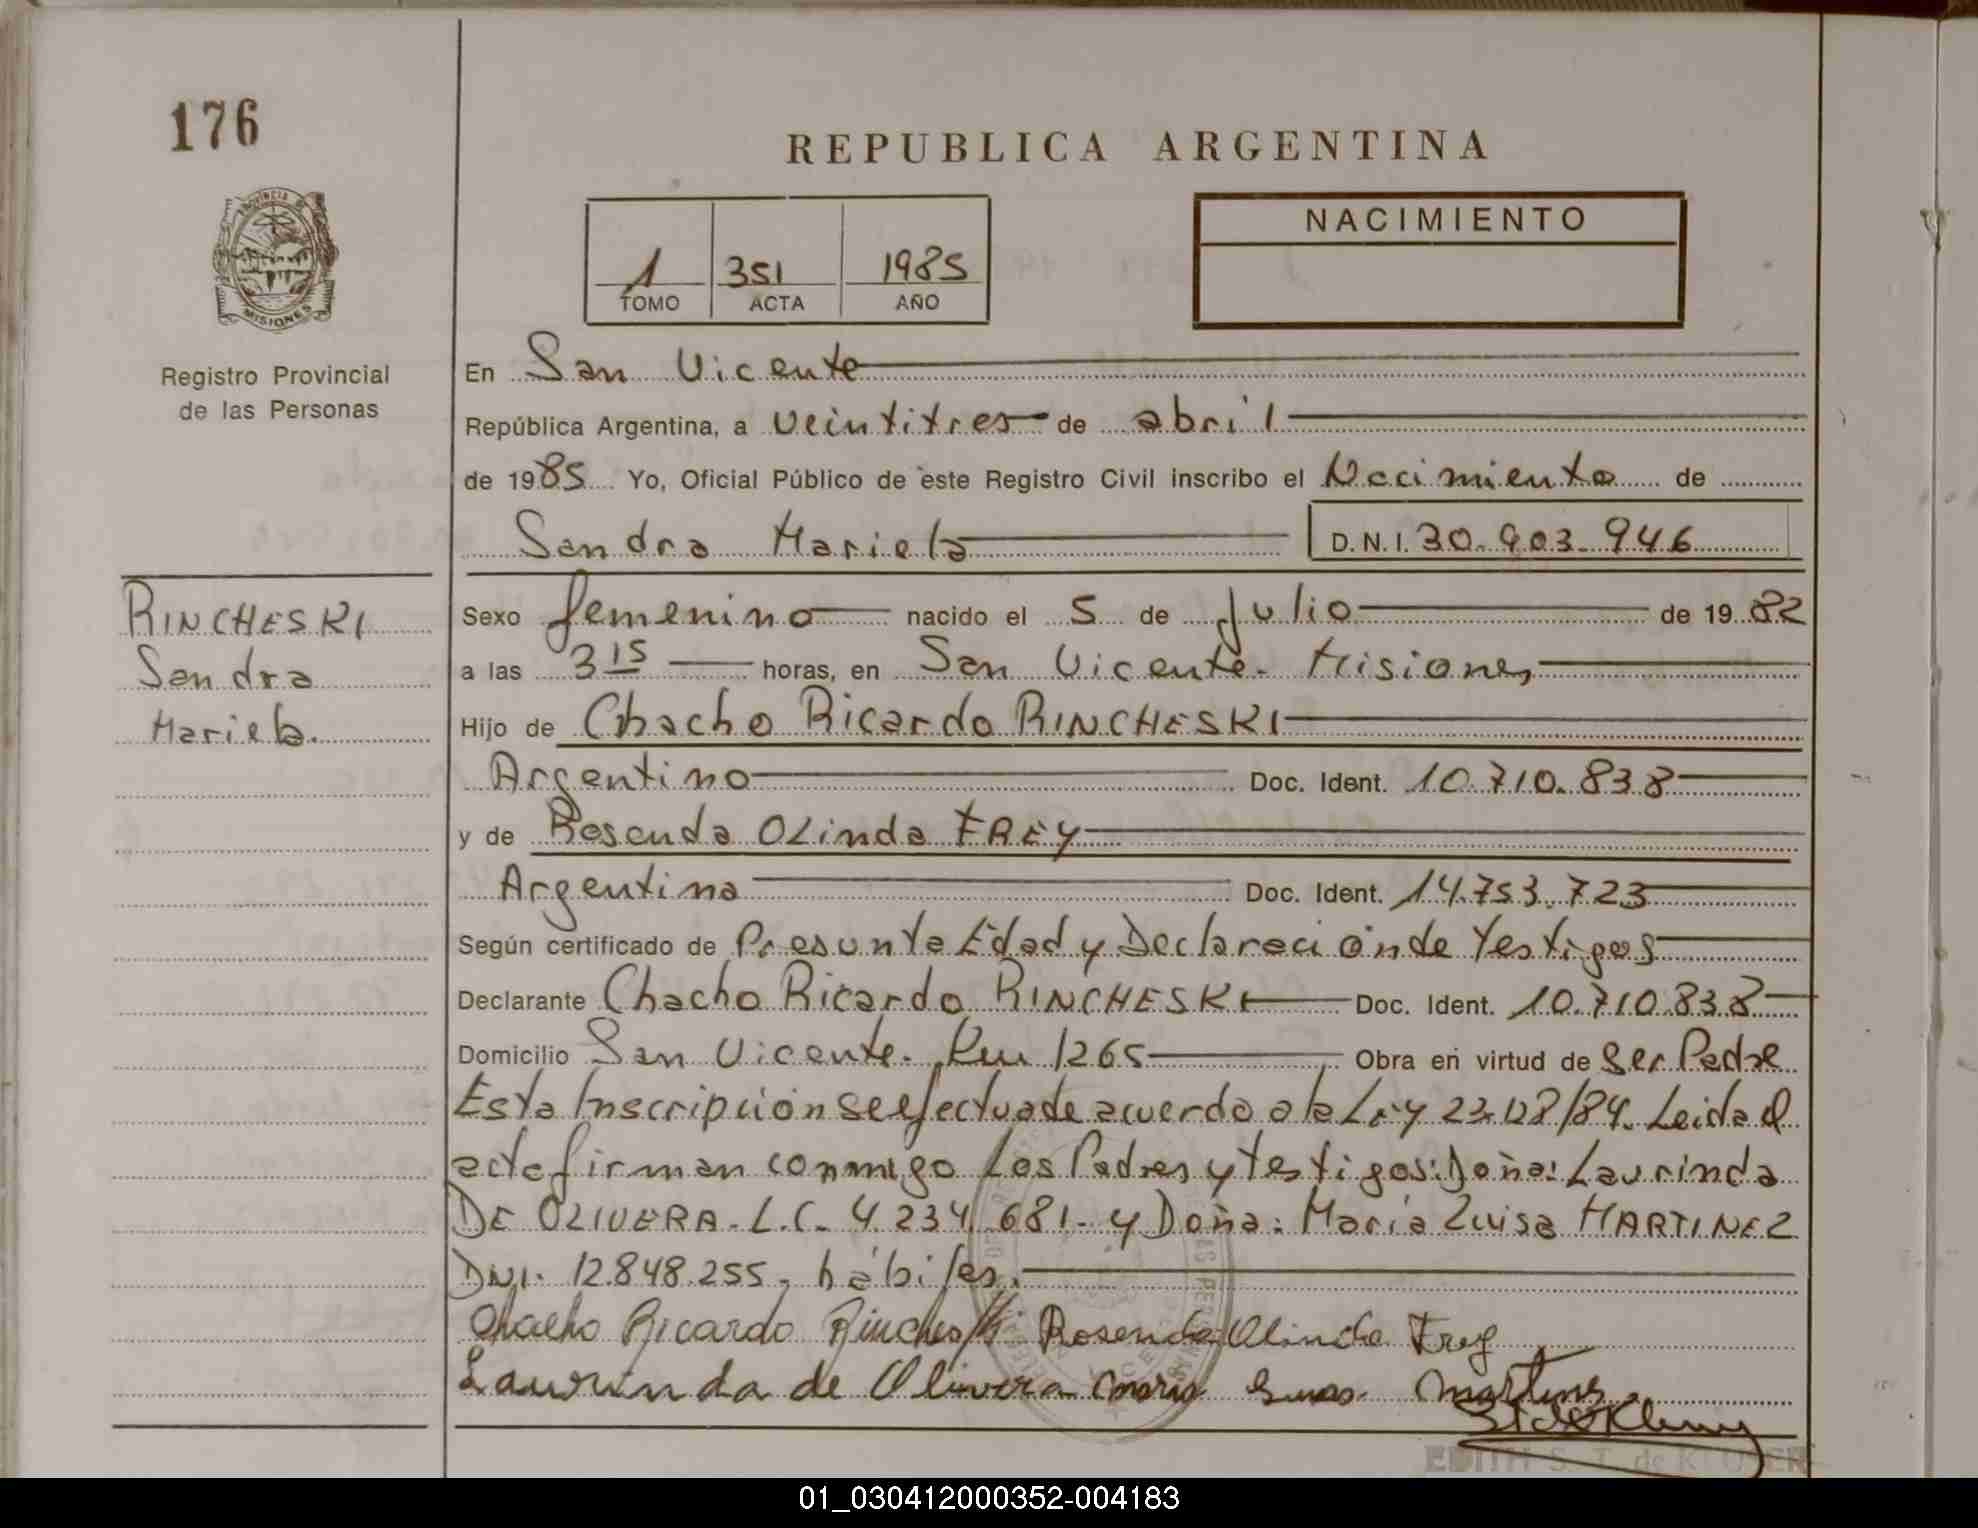 176
REPUBLICA ARGENTINA
PROVINCIA D
MISIONES
1 351 1985
TOMO ACTA AÑO
NACIMIENTO
Registro Provincial
de las Personas
En San Vicente
República Argentina, a veintitres de abril
de 1985 Yo, Oficial Público de este Registro Civil inscribo el Nacimiento de
Sandra Mariela D.N.I. 30.903.946
RINCHESKI
Sandra
Mariela.
Sexo femenino nacido el 5 de Julio de 1982
a las 3 15 horas, en San Vicente - Misiones
Hijo de Chacho Ricardo RINCHESKI
Argentino Doc. Ident. 10.710.838
y de Rosenda OLinda FREY
Argentina Doc. Ident. 14.753.723
Según certificado de Presunta Edad y Declaración de Testigos
Declarante Chacho Ricardo RINCHESKI Doc. Ident. 10.710.838
Domicilio San Vicente. Km 1265 Obra en virtud de Ser Padre
Esta Inscripción se efectua de acuerdo a la Ley 23.128/84. Leida el
acta firman conmigo Los Padres y testigos: Doña: Laurinda
DE OLIVERA - L.C. 4.234.681 - y Doña: María Luisa MARTINEZ
DNI. 12.848.255, hábiles.
Chacho Ricardo Rincheski Rosenda Olinda Frey
Laurinda de Olivera Maria Martins
EDITH S. T. de KLUSENER
01_030412000352-004183